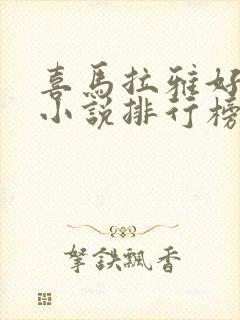 喜馬拉雅好
小說排行榜
拏鉄飄香